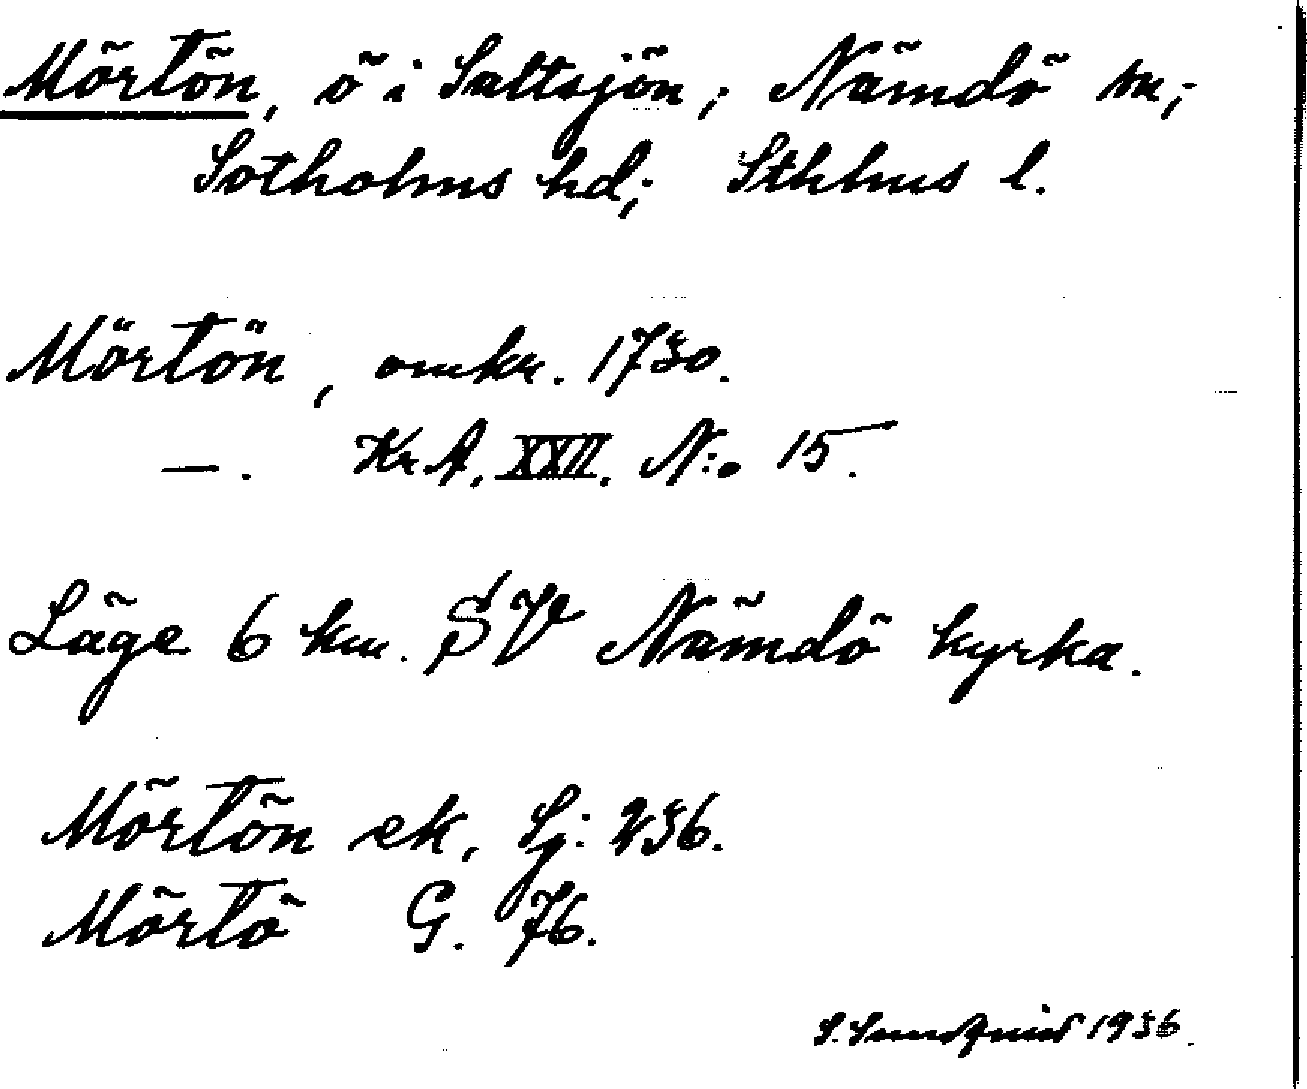 Mörtön, ö i Saltsjön; Nämdö sn;
Sotholms hd; Sthlms l.
Mörtön, omkr. 1730.
—. Kr. A. XXII. N:o 15.
Läge 6 km. SV Nämdö kyrka.
Mörtön ek, Sj: 236.
Mörtö G. 76.
S. Sundqvist 1936.